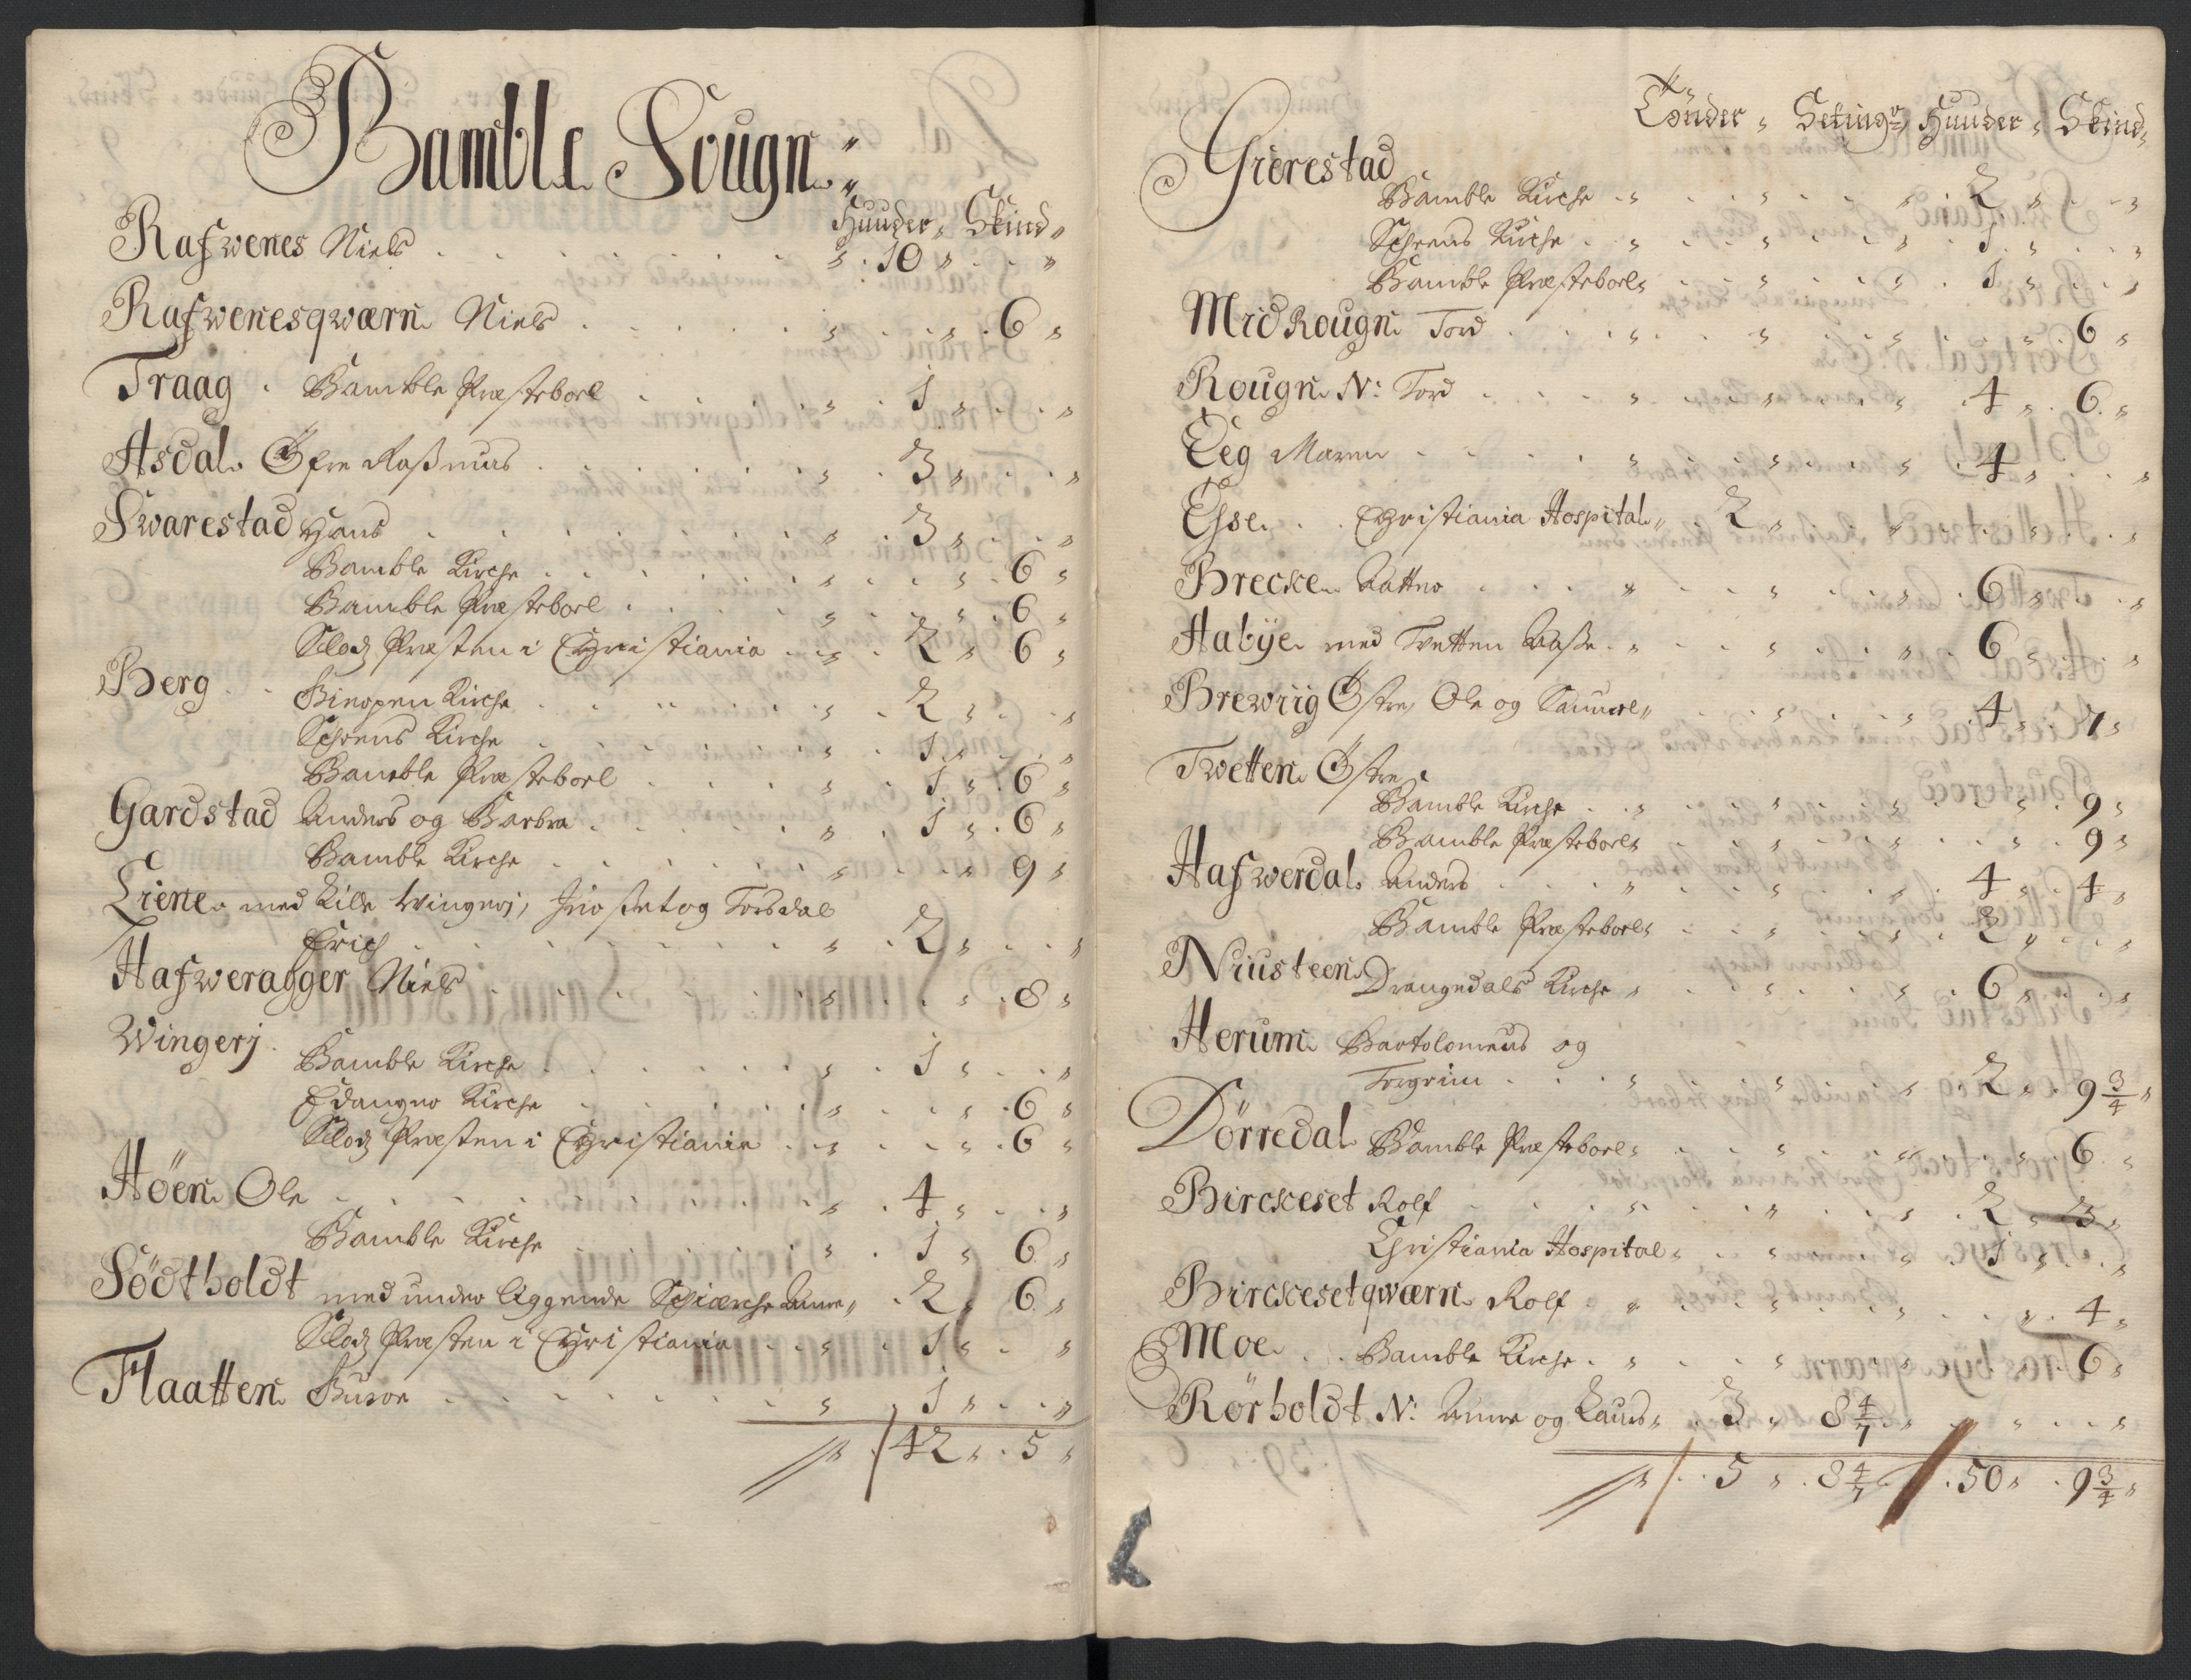 Bamble Sougn
Huuder, Skind
Rafwenes Niels 10
Rafwenesqwærn Niels 6
Traag Bamble Præsteboel 1
Asdal Øfre Rasmus 3
Swarestad Hans 3
Bamble Kirche 6
Bamble Præsteboel 6
Slods Præsten i Christiania 2 6
Berg Kirche 2
Schiens Kirche 1
Bamble Præsteboel 1 6
Gardstad Anders og Barbra 1 6
Bamble Kirche 9
Liene med Lille Wingerj, og Torsdal
Erich 2
Hafweragger Niels 8
Wingerj
Bamble Kirche 1
Edanger Kirche 6
Slods Præsten i Christiania 6
Höen Ole 4
Bamble Kirche 1 6
Södtholdt med under liggende Anne 2 6
Slods Præsten i Christiania 1
Flaatten 1
42 5
Tönder, Setingr, Huuder, Skind
Gierestad
Bamble Kirche 2
Schiens Kirche 1
Bamble Præsteboel 1
MidRougn Tord 6
Rougn N: Tord 4 6
Eeg Maren 4
Esse Christiania Hospital 2
Brecke 6
Habÿe med Tvetten 6
Brewiig Østre, Ole og Samuel 4 7
Twetten Østre
Bamble Kirche 9
Bamble Præsteboel 9
Hafwerdal Anders 4 4
Bamble Præsteboel 2
Niusteen Drangedals Kirche 6
Herum Bartolomeus og
Torgrim 2 9 3/4
Dörredal Bamble Præsteboel 6
Birckeset Rolf 2 3
Christiania Hospital 1
Birckesetqwærn Rolf 4
Moe Bamble Kirche 6
Rörholdt N: Anne og Laurs 3 8 4/7
5 8 4/7 50 9 3/4